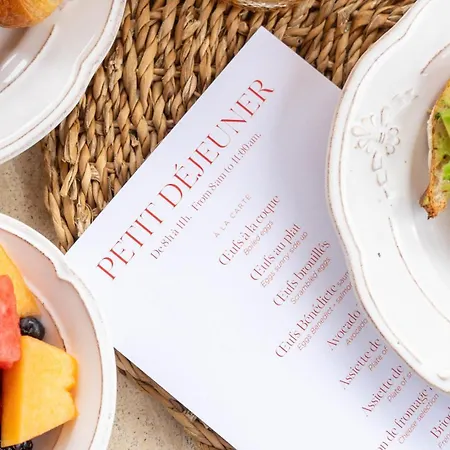 PETIT DÉJEUNER
De 8h à 11h. From 8am to 11:00am.
À LA CARTE
Œufs à la coque
Boiled eggs
Œufs au plat
Eggs sunny side up
Œufs brouillés
Scrambled eggs
Œufs Bénédicte
Eggs Benedict -
Avocado
Assiette de
Plate of
Assiette de
Plate of
de fromage
Cheese selection